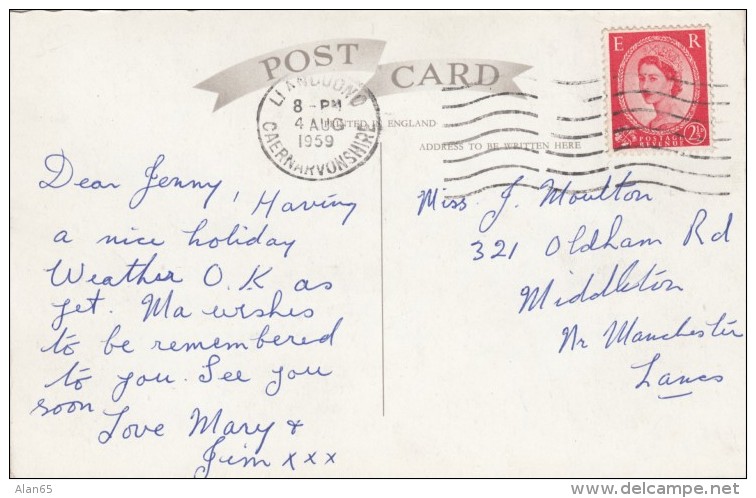 POST CARD
LLANDUDNO
8 - PM
4 AUG
1959
CAERNARVONSHIRE
PRINTED IN ENGLAND
ADDRESS TO BE WRITTEN HERE
E R
POSTAGE
REVENUE
2½
Dear Jenny, Having
a nice holiday
Weather O.K as
yet. Ma wishes
to be remembered
to you. See you
soon
Love Mary &
Jim xxx
Miss. J. Moulton
321 Oldham Rd
Middleton
Nr Manchester
Lancs
Alan65
delcampe.net